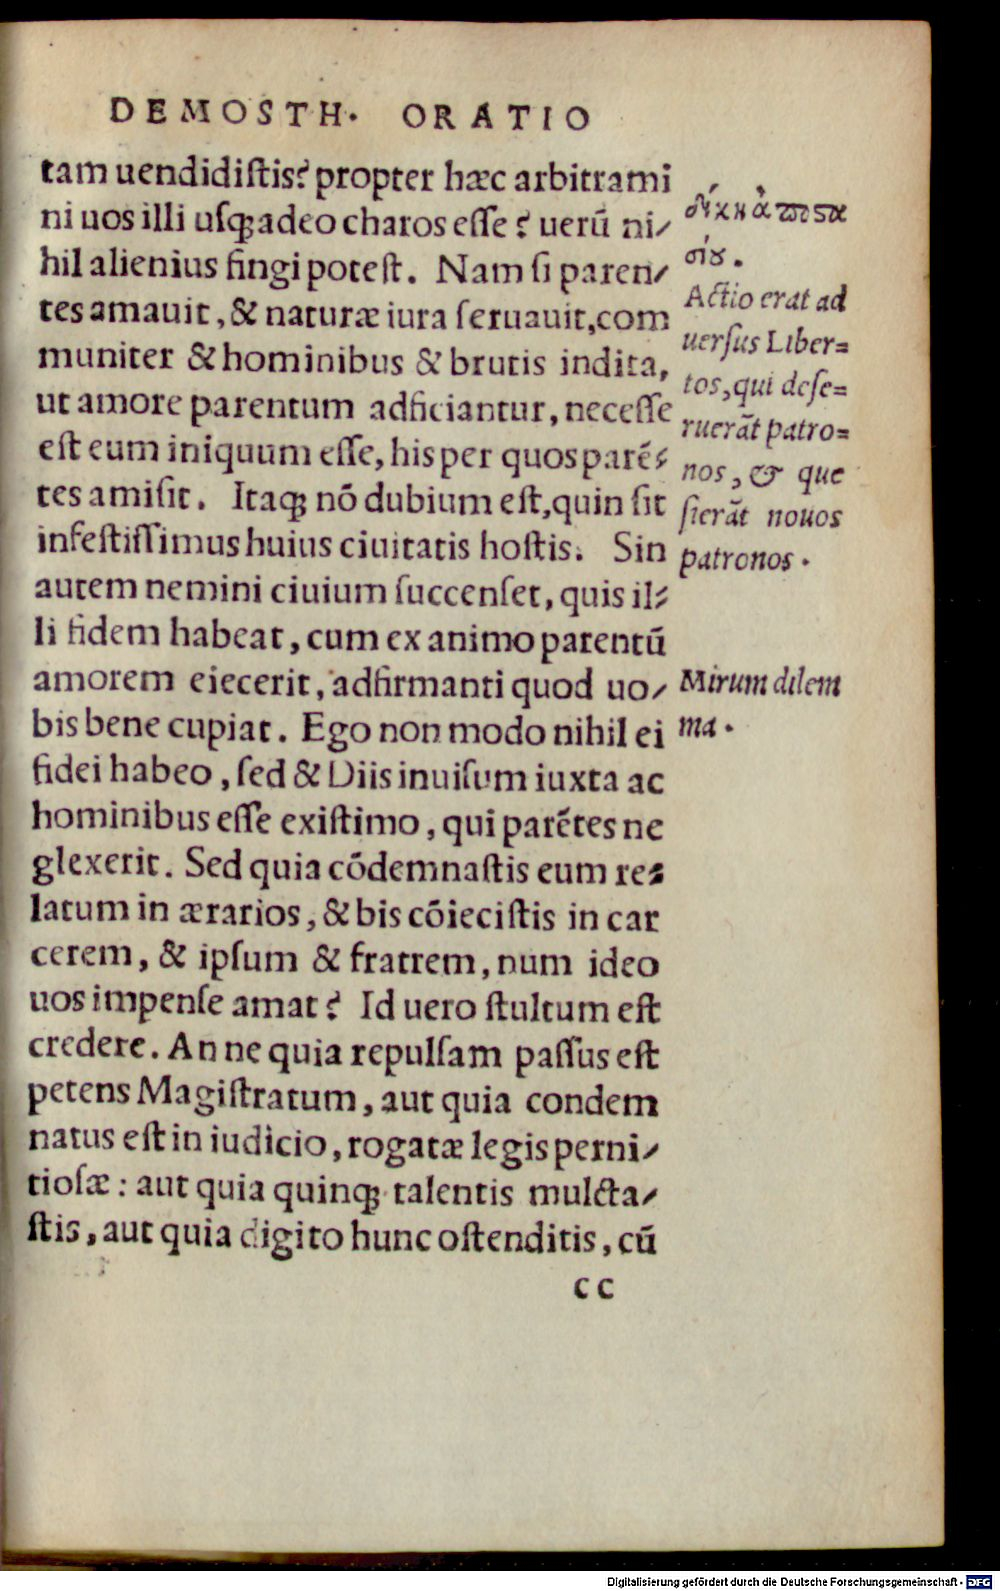 DEMOSTH. ORATIO
tam uendidiſtis? propter hæc arbitrami
ni uos illi uſqꝫ adeo charos eſſe? uerũ ni/
hil alienius fingi poteſt. Nam ſi paren/
tes amauit, & naturæ iura ſeruauit, com
muniter & hominibus & brutis indita,
ut amore parentum adficiantur, neceſſe
eſt eum iniquum eſſe, his per quos parẽ/
tes amiſit. Itaqꝫ nõ dubium eſt, quin ſit
infeſtiſſimus huius ciuitatis hoſtis. Sin
autem nemini ciuium ſuccenſet, quis il/
li fidem habeat, cum ex animo parentũ
amorem eiecerit, adfirmanti quod uo/
bis bene cupiat. Ego non modo nihil ei
fidei habeo, ſed & Diis inuiſum iuxta ac
hominibus eſſe exiſtimo, qui parẽtes ne
glexerit. Sed quia cõdemnaſtis eum re/
latum in ærarios, & bis cõieciſtis in car
cerem, & ipſum & fratrem, num ideo
uos impenſe amat? Id uero ſtultum eſt
credere. An ne quia repulſam paſſus eſt
petens Magiſtratum, aut quia condem
natus eſt in iudicio, rogatæ legis perni/
tioſæ: aut quia quinqꝫ talentis mulcta/
ſtis, aut quia digito hunc oſtenditis, cũ
cc
δίκη ἀποστα
σίȣ.
Actio erat ad
uerſus Liber=
tos, qui deſe=
ruerãt patro=
nos, & que
ſierãt nouos
patronos.
Mirum dilem
ma.
Digitalisierung gefördert durch die Deutsche Forschungsgemeinschaft - DFG